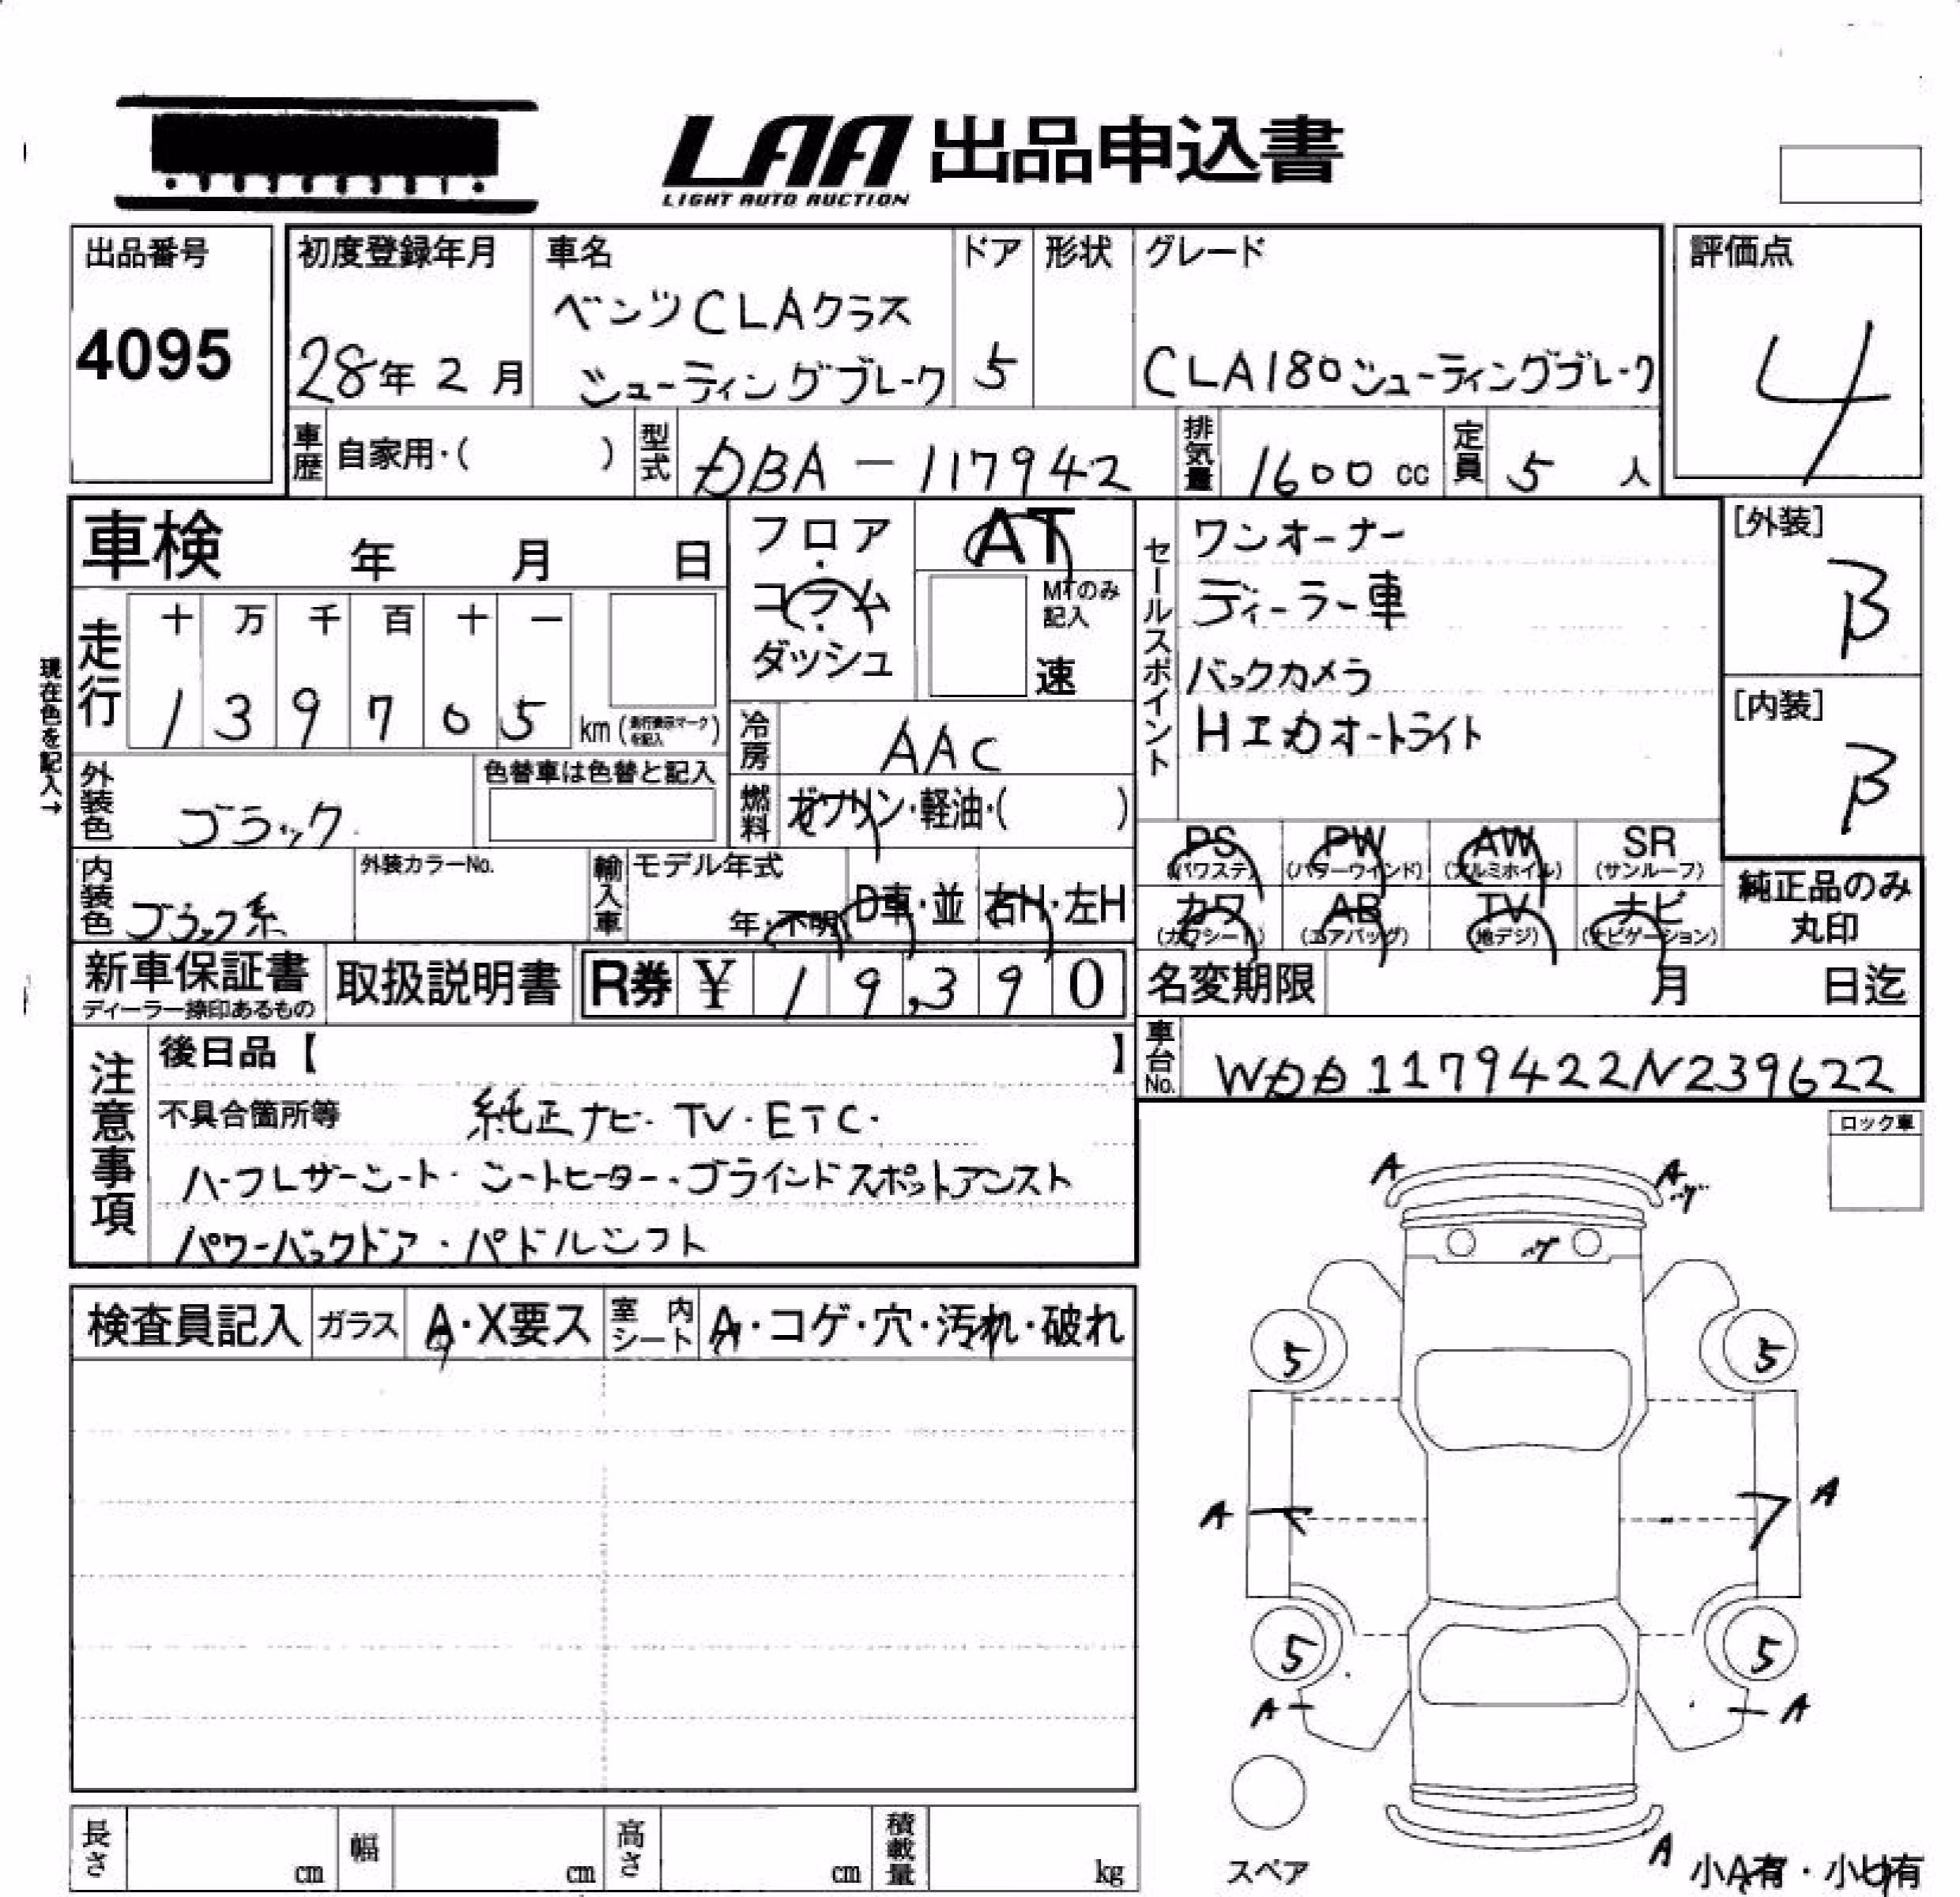 LAA 出品申込書
LIGHT AUTO AUCTION
出品番号
4095
初度登録年月
28年 2月
車名
ベンツCLAクラス
シューティングブレーク
ドア
5
形状
グレード
CLA180シューティングブレーク
評価点
4
車歴 自家用・( )
型式 DBA-117942
排気量 1600 cc
定員 5 人
車検 年 月 日
走行 十 万 千 百 十 一
1 3 9 7 0 5 km (走行表示マークを記入)
現在色を記入→
フロア
・
コラム
・
ダッシュ
AT
MTのみ
記入
速
冷房 AAC
燃料 ガソリン・軽油・( )
セールスポイント
ワンオーナー
ディーラー車
バックカメラ
HIDオートライト
[外装]
B
[内装]
B
外装色 ブラック
色替車は色替と記入
内装色 ブラック系
外装カラーNo.
輸入車 モデル年式
年・不明
D車・並
右H・左H
PS (パワステ)
PW (パワーウインド)
AW (アルミホイル)
SR (サンルーフ)
カワ (カワシート)
AB (エアバッグ)
TV (地デジ)
ナビ (ナビゲーション)
純正品のみ
丸印
新車保証書
ディーラー捺印あるもの
取扱説明書
R券 ¥ 19,390
名変期限 月 日迄
車台No. WDD1179422N239622
注意事項
後日品【 】
不具合箇所等 純正ナビ・TV・ETC・
ハーフレザーシート・シートヒーター・ブラインドスポットアシスト
パワーバックドア・パドルシフト
ロック車
検査員記入
ガラス A・X要ス
室内シート A・コゲ・穴・汚れ・破れ
A
A
5
5
A
A
5
5
A
A
スペア
A
小A有・小U有
長さ cm
幅 cm
高さ cm
積載量 kg